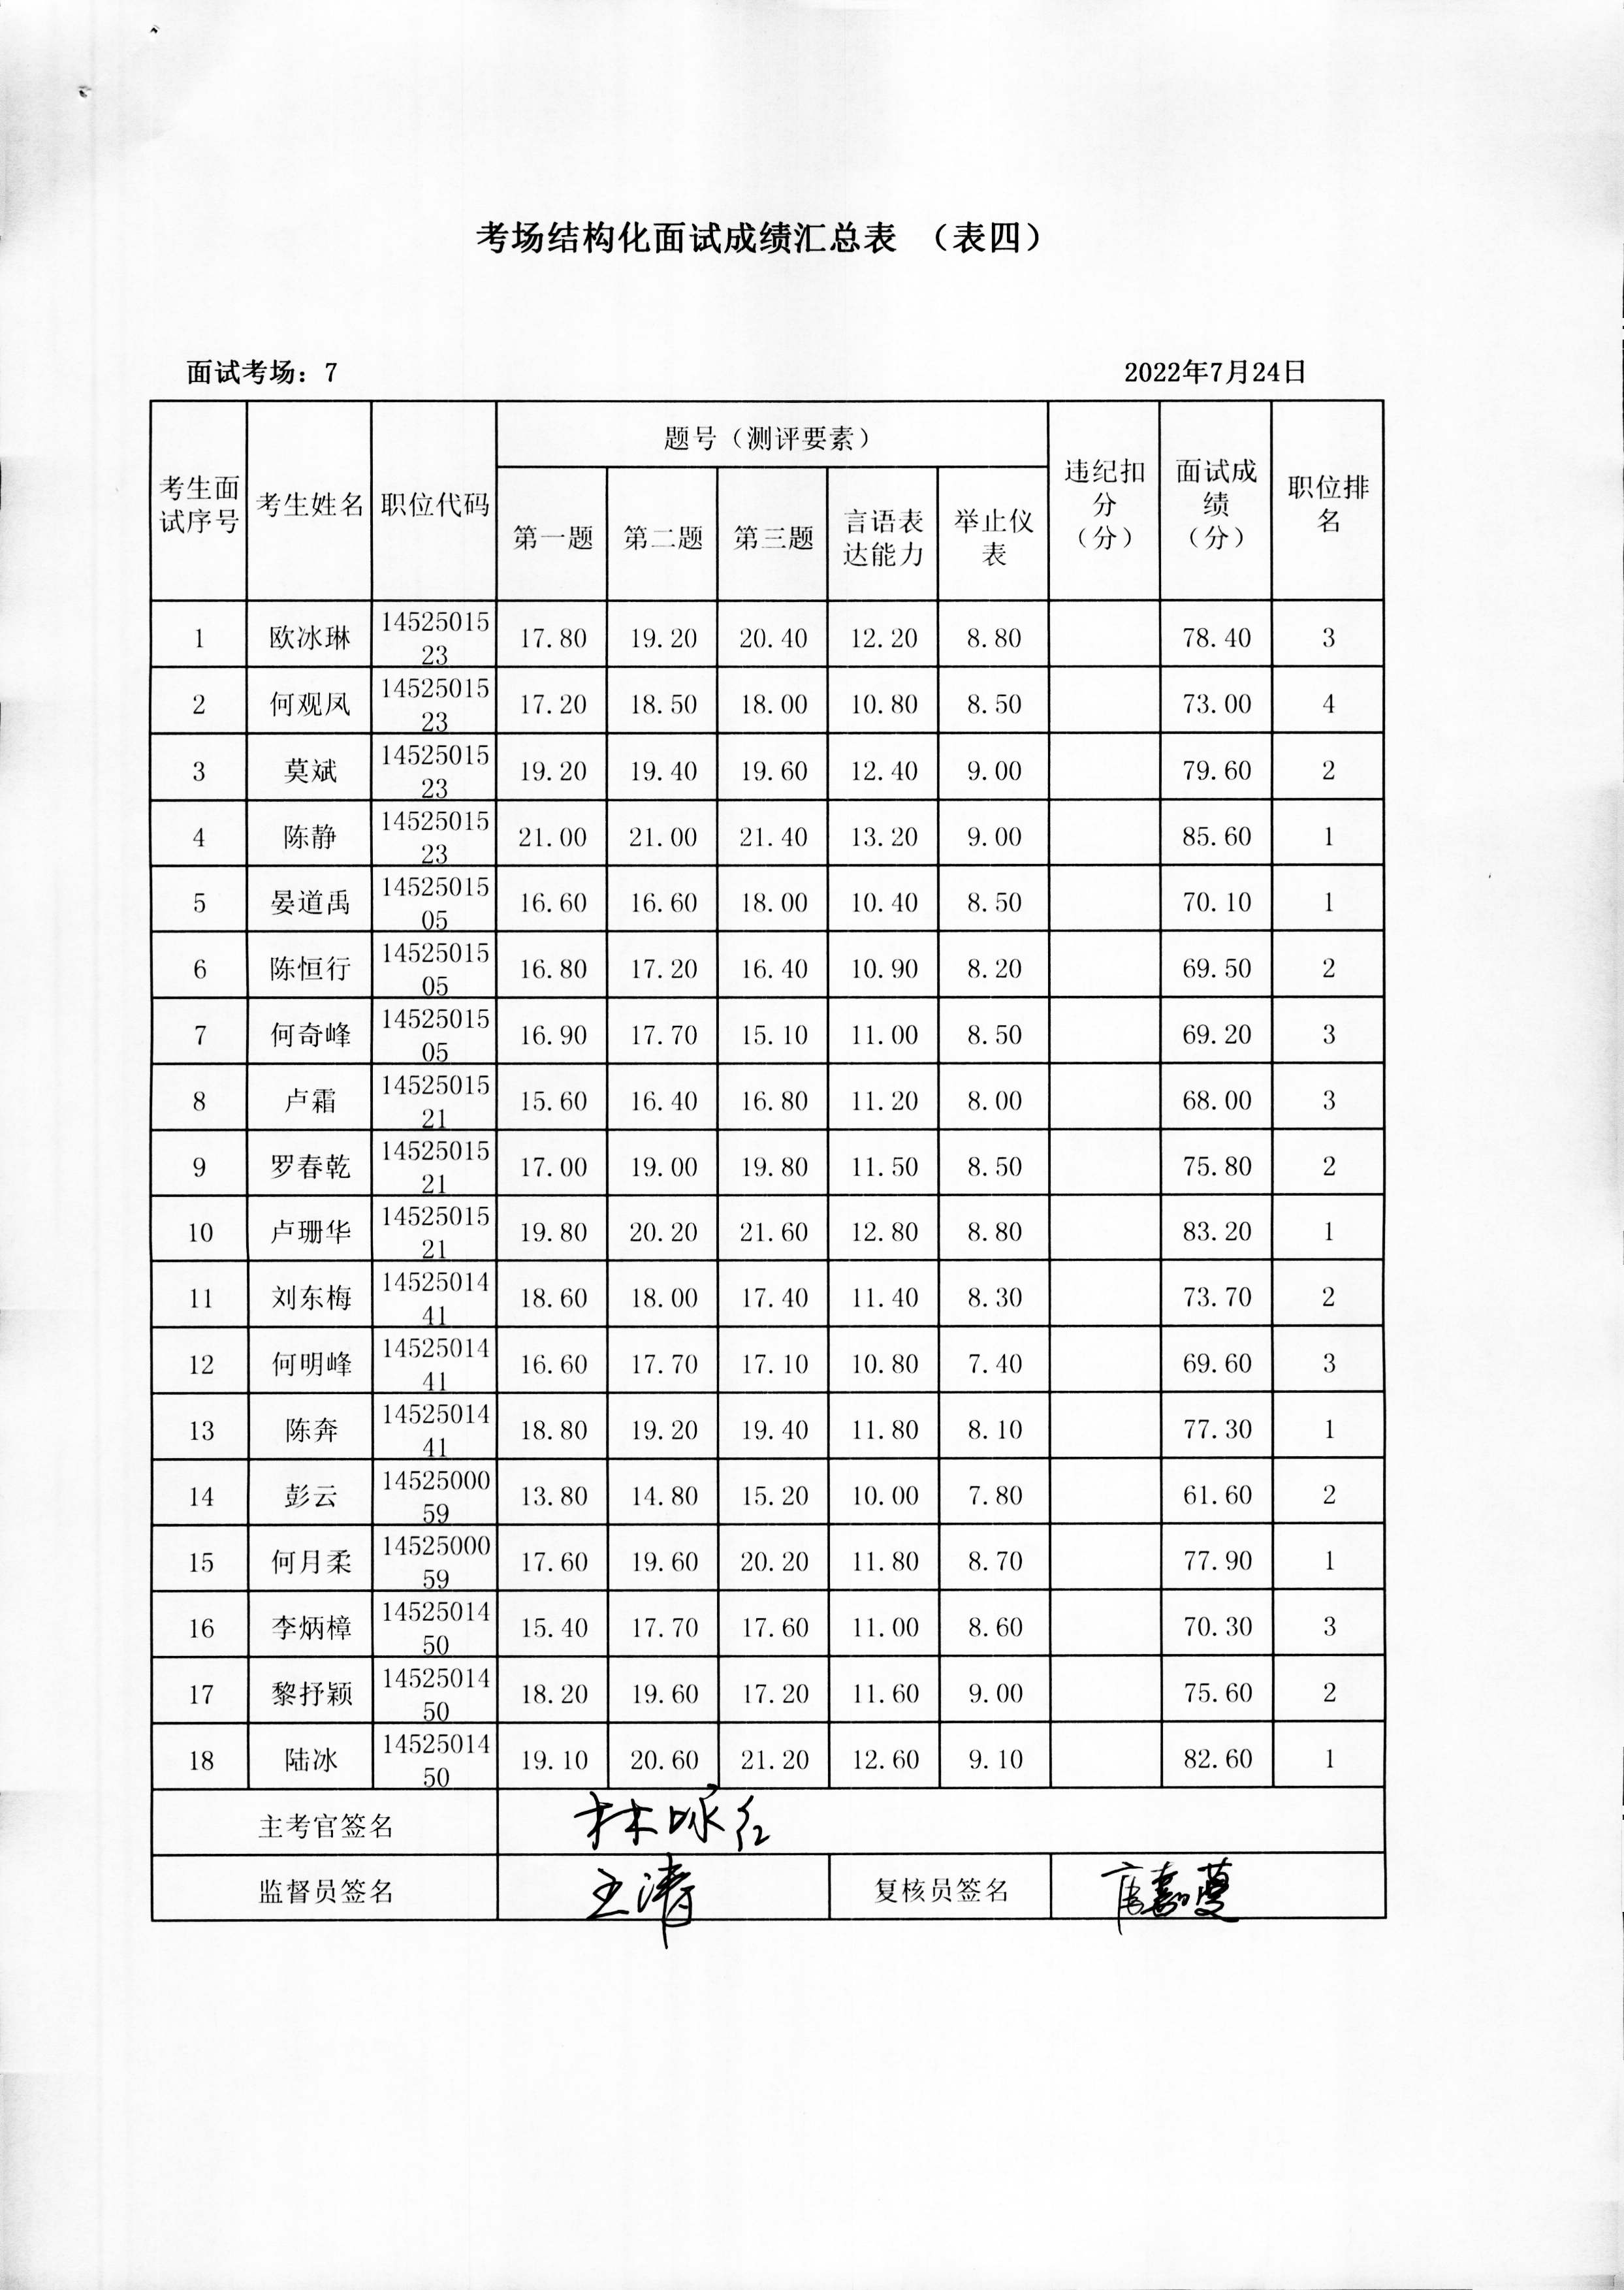 考场结构化面试成绩汇总表 （表四）
面试考场：7 2022年7月24日
考生面试序号 考生姓名 职位代码 题号（测评要素） 违纪扣分（分） 面试成绩（分） 职位排名
第一题 第二题 第三题 言语表达能力 举止仪表
1 欧冰琳 1452501523 17.80 19.20 20.40 12.20 8.80 78.40 3
2 何观凤 1452501523 17.20 18.50 18.00 10.80 8.50 73.00 4
3 莫斌 1452501523 19.20 19.40 19.60 12.40 9.00 79.60 2
4 陈静 1452501523 21.00 21.00 21.40 13.20 9.00 85.60 1
5 晏道禹 1452501505 16.60 16.60 18.00 10.40 8.50 70.10 1
6 陈恒行 1452501505 16.80 17.20 16.40 10.90 8.20 69.50 2
7 何奇峰 1452501505 16.90 17.70 15.10 11.00 8.50 69.20 3
8 卢霜 1452501521 15.60 16.40 16.80 11.20 8.00 68.00 3
9 罗春乾 1452501521 17.00 19.00 19.80 11.50 8.50 75.80 2
10 卢珊华 1452501521 19.80 20.20 21.60 12.80 8.80 83.20 1
11 刘东梅 1452501441 18.60 18.00 17.40 11.40 8.30 73.70 2
12 何明峰 1452501441 16.60 17.70 17.10 10.80 7.40 69.60 3
13 陈奔 1452501441 18.80 19.20 19.40 11.80 8.10 77.30 1
14 彭云 1452500059 13.80 14.80 15.20 10.00 7.80 61.60 2
15 何月柔 1452500059 17.60 19.60 20.20 11.80 8.70 77.90 1
16 李炳樟 1452501450 15.40 17.70 17.60 11.00 8.60 70.30 3
17 黎抒颖 1452501450 18.20 19.60 17.20 11.60 9.00 75.60 2
18 陆冰 1452501450 19.10 20.60 21.20 12.60 9.10 82.60 1
主考官签名 林咏红
监督员签名 王清 复核员签名